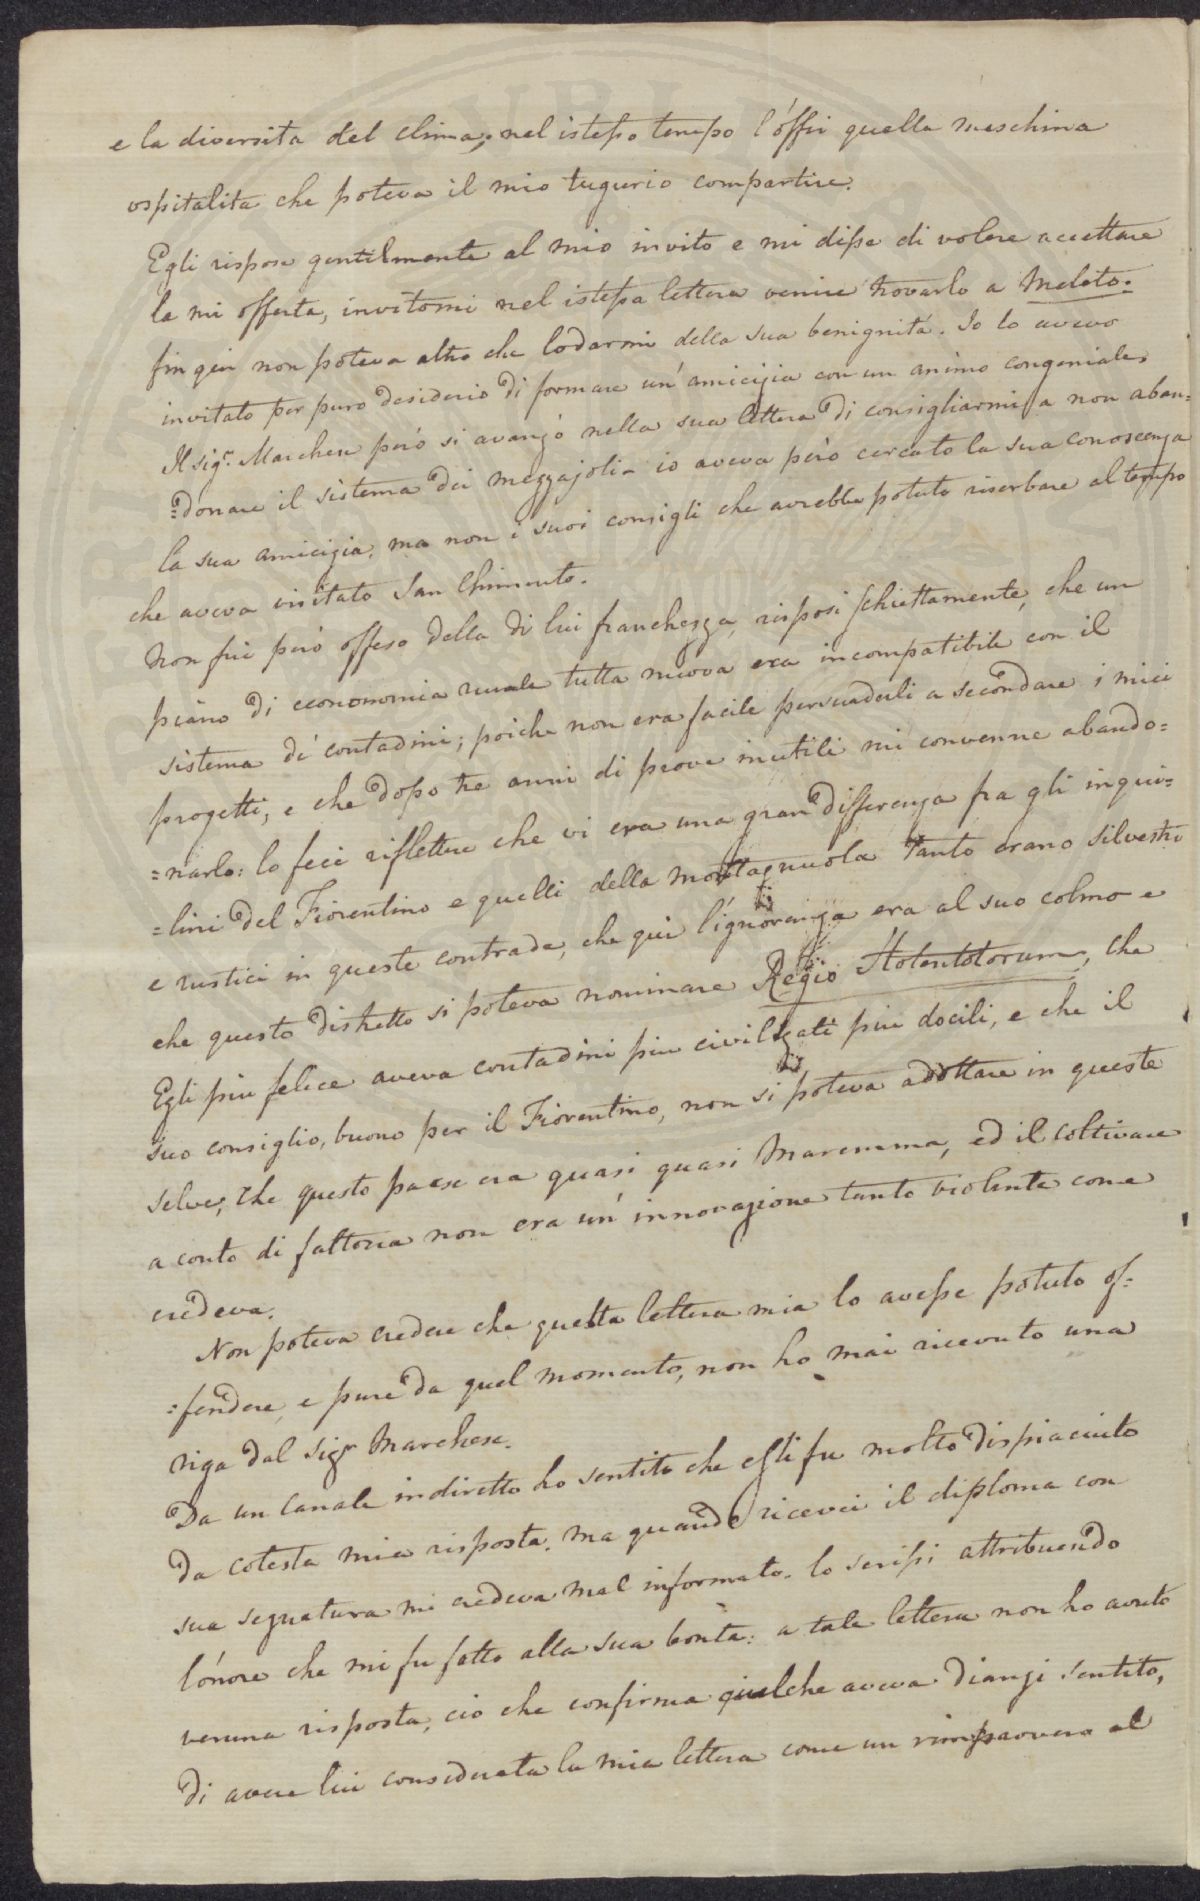 e la diversita del clima; nel istesso tempo l'offri quella meschina
ospitalita che poteva il mio tugurio compartire.
Egli rispose gentilmente al mio invito e mi disse di volere accettare
la mi offerta, invitomi nel istessa lettera venire trovarlo a Meleto.
fin qui non poteva altro che lodarmi della sua benignitá. Io lo avevo
invitato per puro desiderio di formare un' amicizia con un animo congeniale.
Il sigr. Marchese peró si avanzó nella sua lettera di consigliarmi a non aban=
=donare il sistema dei mezzajoli - io aveva peró cercato la sua conoscenza
la sua amicizia, ma non i suoi consigli che avrebbe potuto riserbare al tempo
che aveva visitato San Chimento.
Non fui peró offeso della di lui franchezza, risposi schiettamente, che un
piano di econonomia rurale tutta nuova era incompatibile con il
sistema di contadini; poiche non era facile persuaderli a secondare i miei
progetti, e che dopo tre anni di prove inutili mi convenne abando=
=narlo: lo feci riflettere che vi era una gran differenza fra gli inqui=
=lini del Fiorentino e quelli della montagnuola tanto erano silvestri
e rustici in queste contrade, che qui l'ignoranza era al suo colmo e
che questo distretto si poteva nominare Regio Hotentotorum, che
Egli piu felice aveva contadini piu civilizati piu docili, e che il
suo consiglio, buono per il Fiorentino, non si poteva adottare in queste
selve; che questo paese era quasi quasi Maremma, ed il coltivare
a conto di fattoria non era un' innovazione tanto violenta come
credeva.
Non poteva credere che questa lettera mia lo avesse potuto of=
=fendere, e pure da quel momento, non ho mai ricevuto una
riga dal sigr Marchese.
Da un canale indiretto ho sentito che egli fu molto dispiaciuto
da cotesta mia risposta, ma quando ricevei il diploma con
sua segnatura mi credeva mal informato. lo scrissi attribuendo
l'onore che mi fu fatto alla sua bontà: a tale lettera non ho avuto
veruna risposta, ció che confirma quelche aveva dianzi sentito,
di avere lui considerata la mia lettera come un rimprovero al